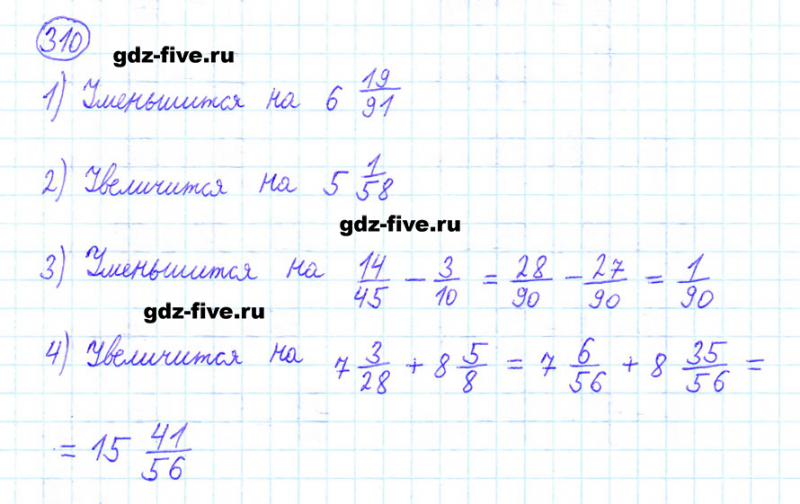 310
gdz-five.ru
1) Уменьшится на 6 19/91
2) Увеличится на 5 1/58
gdz-five.ru
3) Уменьшится на 14/45 − 3/10 = 28/90 − 27/90 = 1/90
gdz-five.ru
4) Увеличится на 7 3/28 + 8 5/8 = 7 6/56 + 8 35/56 =
= 15 41/56